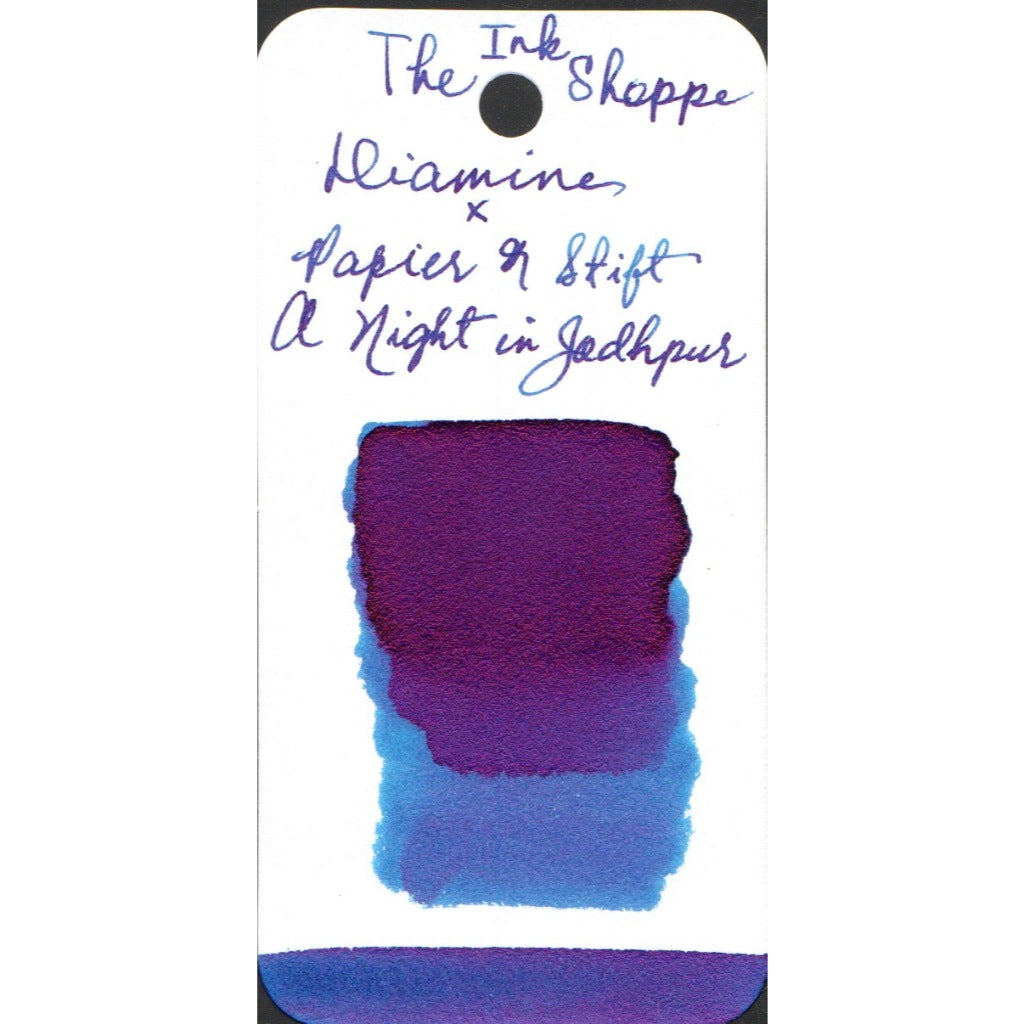 The Ink Shoppe
Diamine
x
Papier & Stift
A Night in Jodhpur